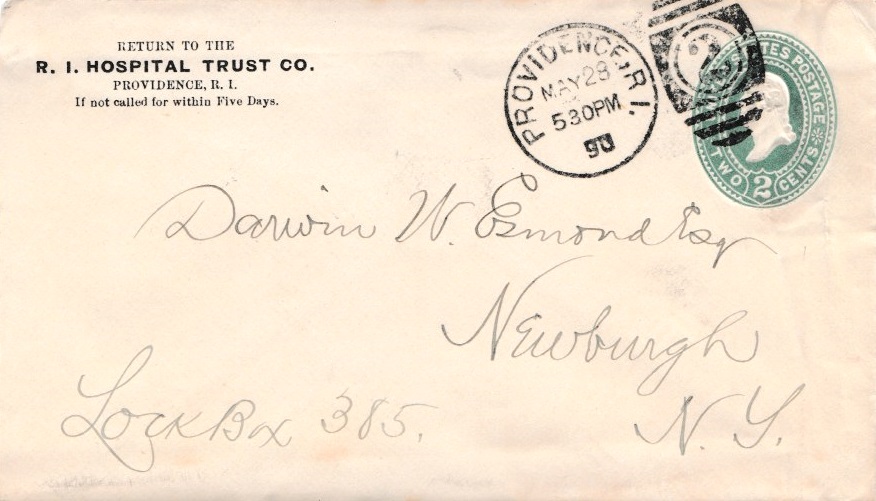 RETURN TO THE
R. I. HOSPITAL TRUST CO.
PROVIDENCE, R. I.
If not called for within Five Days.
PROVIDENCE, R.I.
MAY 28
530PM
TES POSTAGE
TWO 2 CENTS
Darwin W. Esmond Esq
Newburgh
Lock Box 385.
N.Y.